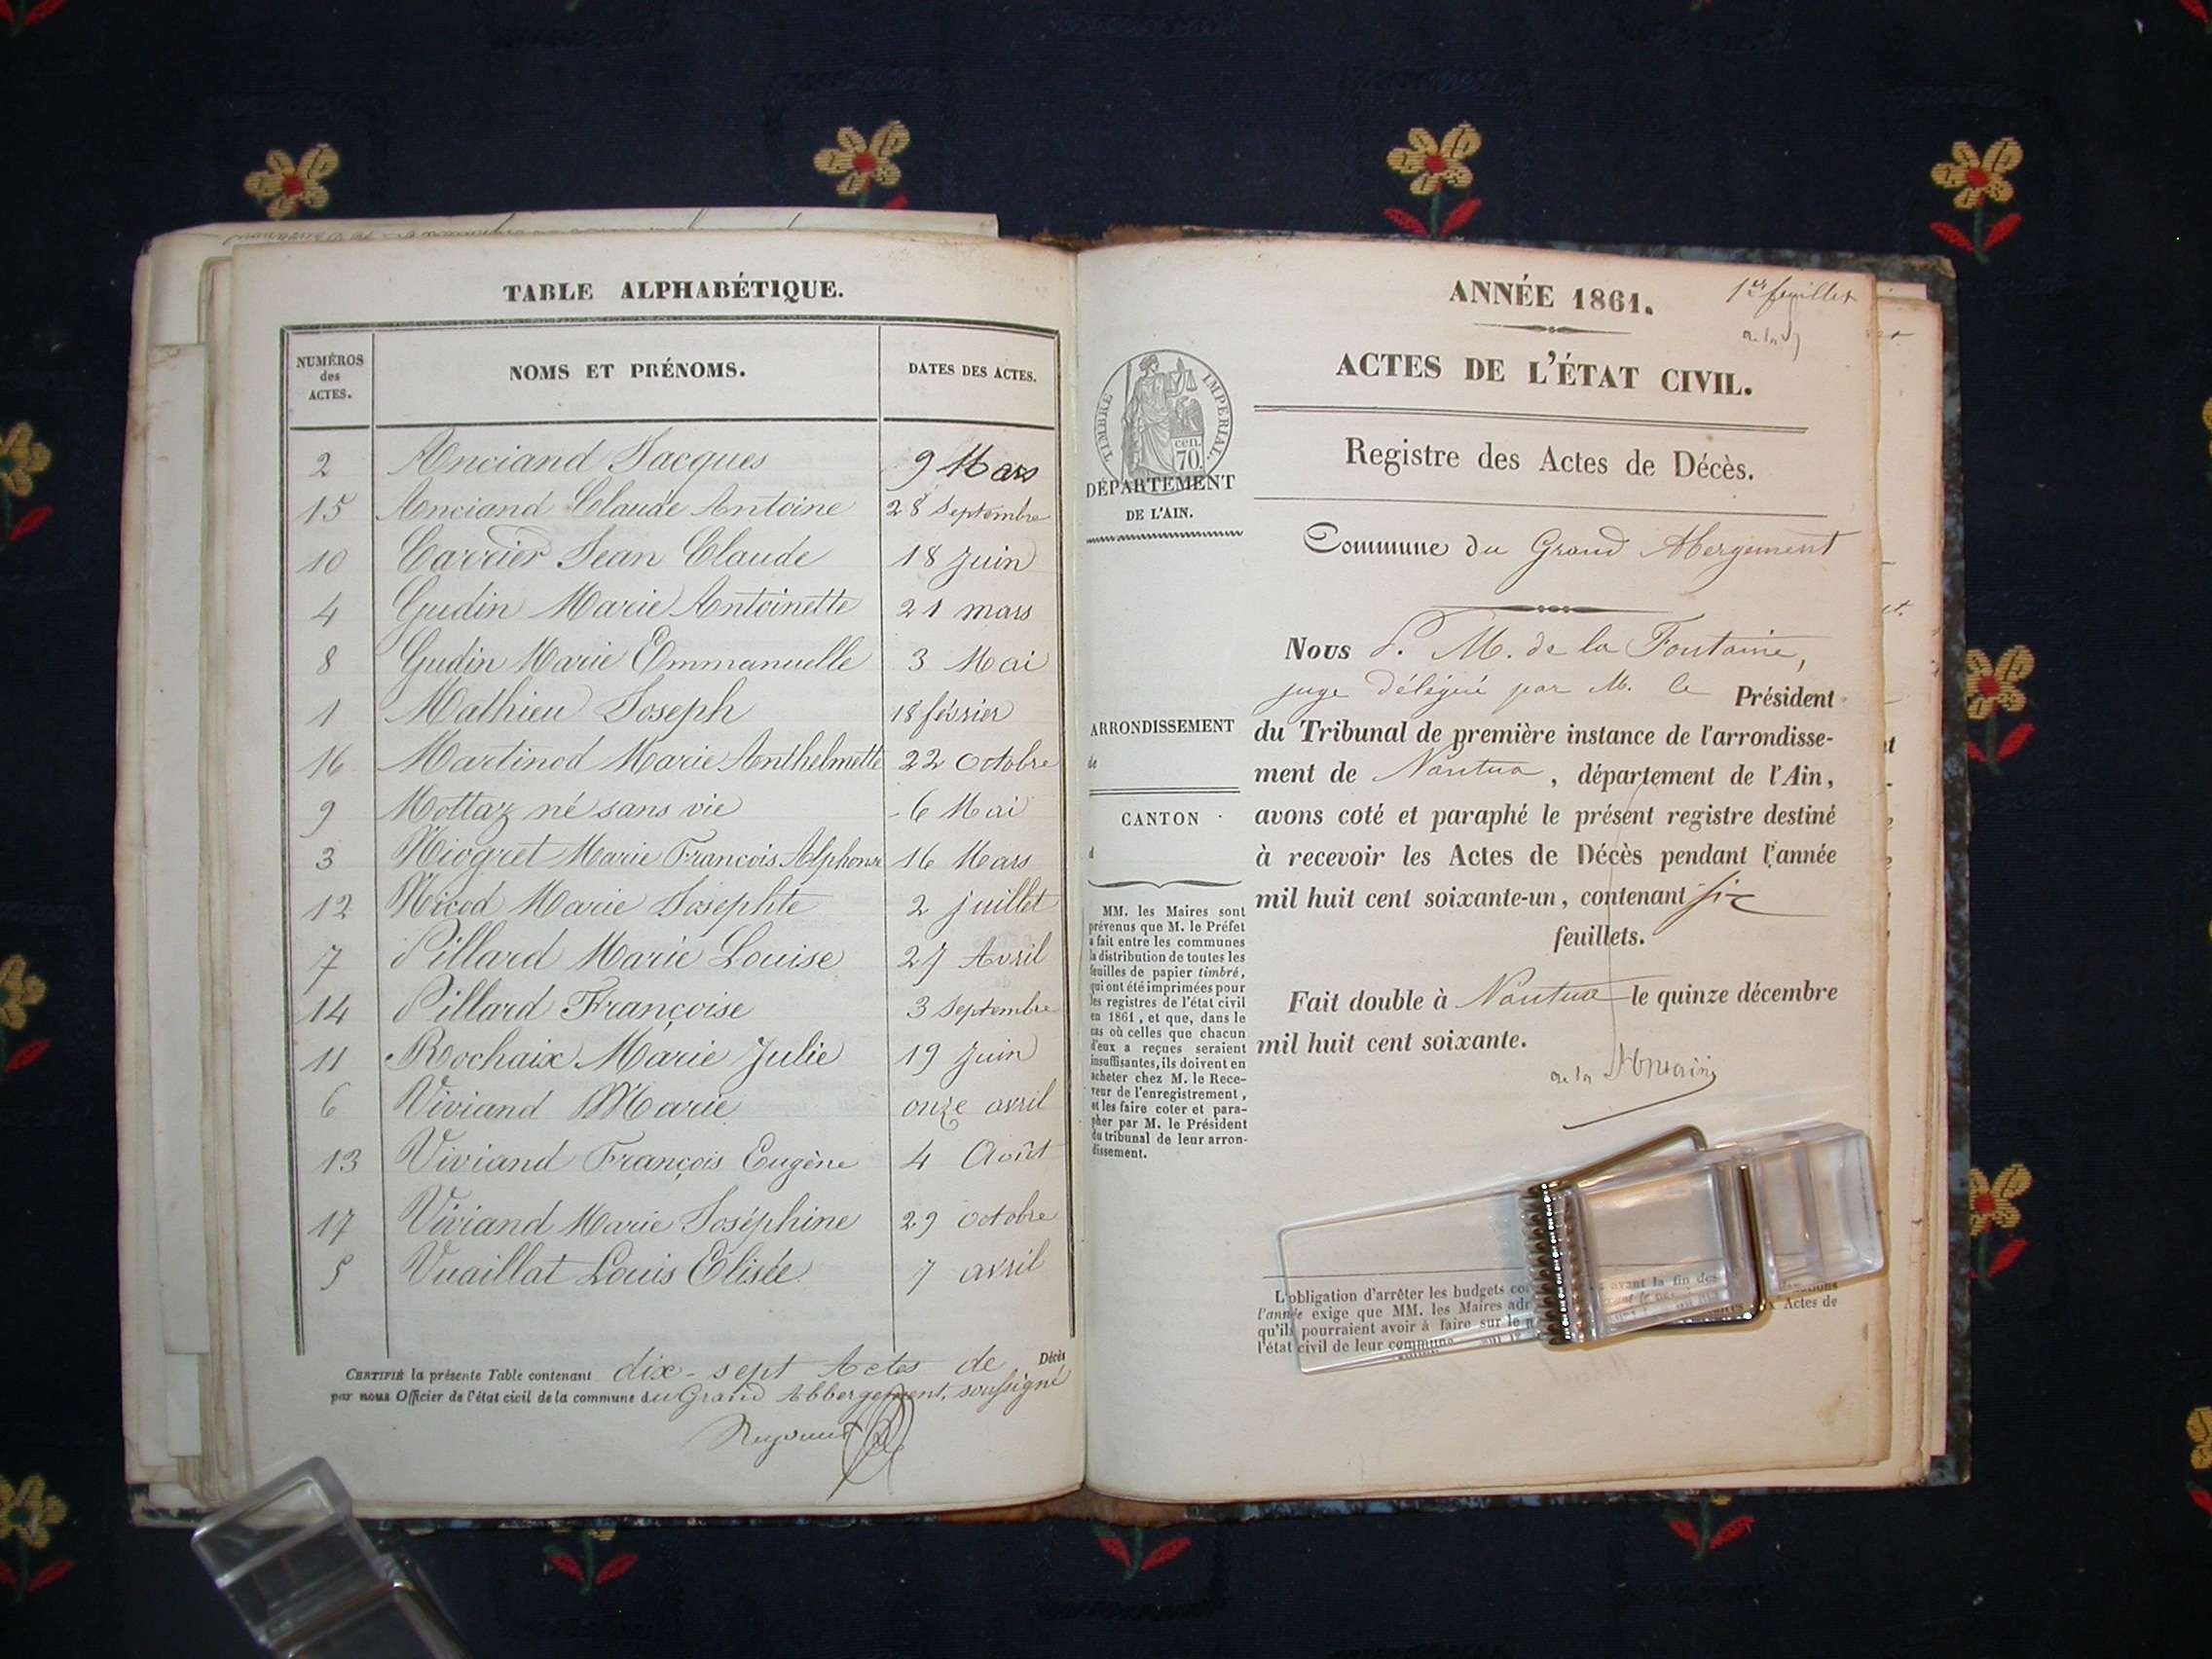 TABLE ALPHABÉTIQUE.
NUMÉROS des ACTES. NOMS ET PRÉNOMS. DATES DES ACTES.
2 Anciand Jacques 9 Mars
15 Anciand Claude Antoine 28 Septembre
10 Carrier Jean Claude 18 Juin
4 Gudin Marie Antoinette 21 mars
8 Gudin Marie Emmanuelle 3 Mai
1 Mathieu Joseph 18 février
16 Martinod Marie Anthelmette 22 Octobre
9 Mottaz né sans vie 6 Mai
3 Niogret Marie François Alphonse 16 Mars
12 Nicod Marie Josephte 2 juillet
7 Pillard Marie Louise 27 Avril
14 Pillard Françoise 3 Septembre
11 Rochaix Marie Julie 19 Juin
6 Viviand Marie onze avril
13 Viviand François Eugène 4 Août
17 Viviand Marie Joséphine 29 Octobre
5 Vuaillat Louis Elisée 7 avril
CERTIFIÉ la présente Table contenant dix-sept Actes de Décès
par nous Officier de l'état civil de la commune du Grand Abbergement, soussigné
1er feuillet
ANNÉE 1861.
ACTES DE L'ÉTAT CIVIL.
TIMBRE IMPERIAL
cen.
70.
DÉPARTEMENT
DE L'AIN.
ARRONDISSEMENT
de
CANTON
d
MM. les Maires sont
prévenus que M. le Préfet
a fait entre les communes
la distribution de toutes les
feuilles de papier timbré,
qui ont été imprimées pour
les registres de l'état civil
en 1861, et que, dans le
cas où celles que chacun
d'eux a reçues seraient
insuffisantes, ils doivent en
acheter chez M. le Rece-
veur de l'enregistrement,
et les faire coter et para-
pher par M. le Président
du tribunal de leur arron-
dissement.
Registre des Actes de Décès.
Commune du Grand Abergement
Nous P. M. de la Fontaine,
juge délégué par M. le Président
du Tribunal de première instance de l'arrondisse-
ment de Nantua, département de l'Ain,
avons coté et paraphé le présent registre destiné
à recevoir les Actes de Décès pendant l'année
mil huit cent soixante-un, contenant six
feuillets.
Fait double à Nantua le quinze décembre
mil huit cent soixante.
de la Fontaine
L'obligation d'arrêter les budgets avant la fin des
l'année exige que MM. les Maires
qu'ils pourraient avoir à faire sur le Actes de
l'état civil de leur commune